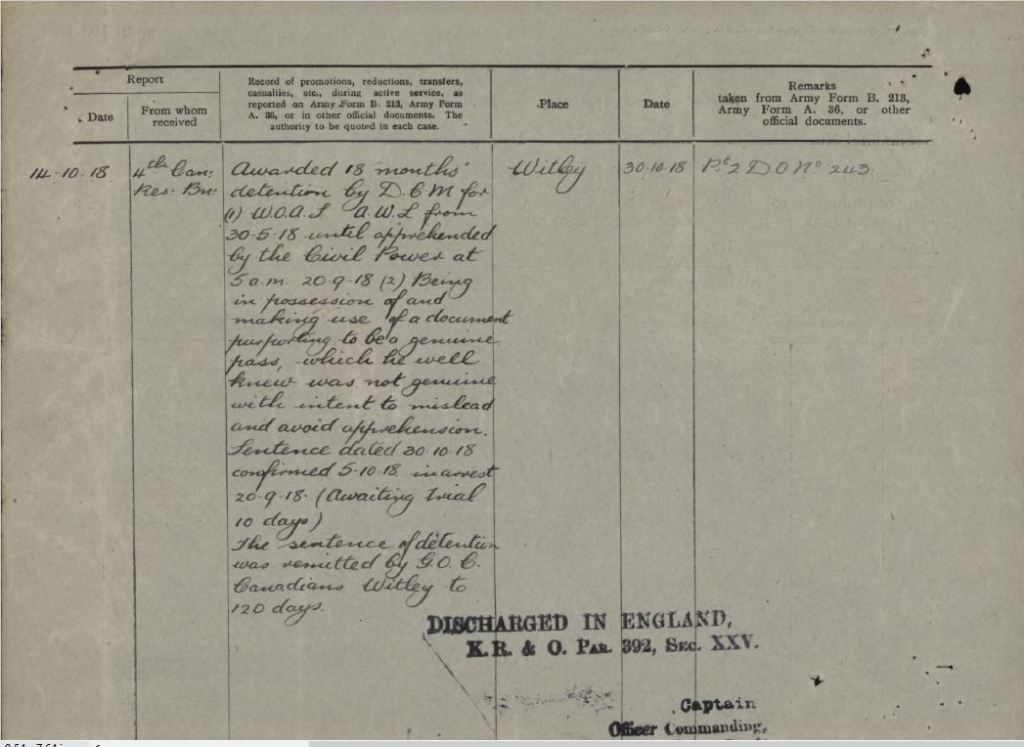 Report
Date
From whom
received
Record of promotions, reductions, transfers,
casualties, etc., during active service, as
reported on Army Form B. 213, Army Form
A. 36, or in other official documents. The
authority to be quoted in each case.
Place
Date
Remarks
taken from Army Form B. 213,
Army Form A. 36, or other
official documents.
14-10-18
4th Can:
Res: Bn:
Awarded 18 months'
detention by D.C.M for
(1) W.O.A.S A.W.L from
30-5-18 until apprehended
by the Civil Power at
5 a.m. 20-9-18 (2) Being
in possession of and
making use of a document
purporting to be a genuine
pass, which he well
knew was not genuine
with intent to mislead
and avoid apprehension.
Sentence dated 30·10·18
confirmed 5·10·18. in arrest
20-9-18. (Awaiting trial
10 days)
The sentence of detention
was remitted by G.O.C.
Canadians Witley to
120 days.
Witley
30·10·18
Pt 2 D.O No 243
DISCHARGED IN ENGLAND,
K.R. & O. PAR. 392, SEC. XXV.
Captain
Officer Commanding,